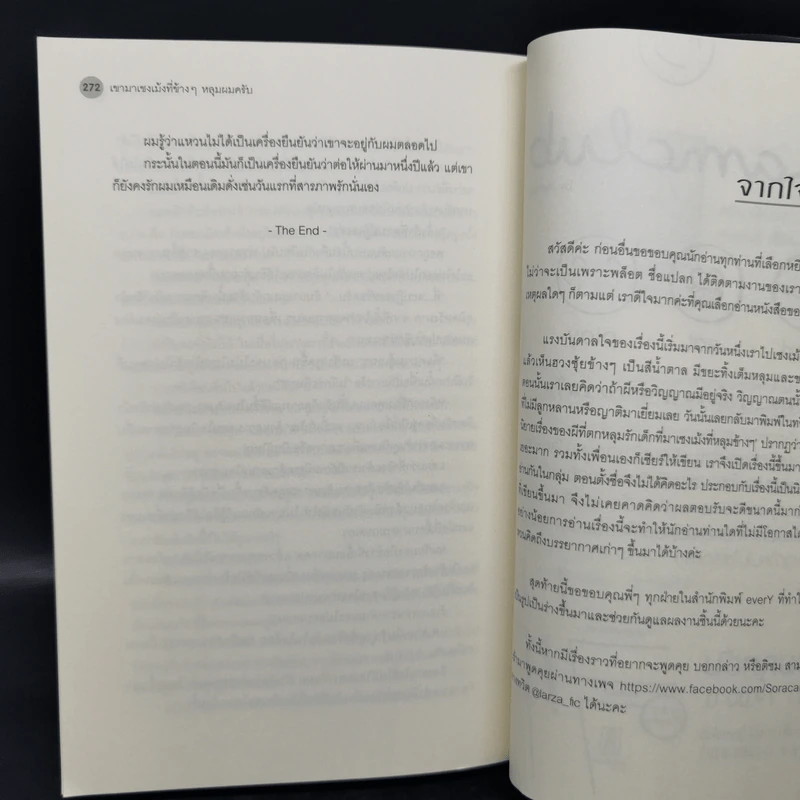 272 เขามาเชงเม้งที่ข้างๆ หลุมผมครับ
ผมรู้ว่าแหวนไม่ได้เป็นเครื่องยืนยันว่าเขาจะอยู่กับผมตลอดไป
กระนั้นในตอนนี้มันก็เป็นเครื่องยืนยันว่าต่อให้ผ่านมาหนึ่งปีแล้ว แต่เขา
ก็ยังคงรักผมเหมือนเดิมดั่งเช่นวันแรกที่สารภาพรักนั่นเอง
- The End -
จากใจ
สวัสดีค่ะ ก่อนอื่นขอขอบคุณนักอ่านทุกท่านที่เลือกหยิ
ไม่ว่าจะเป็นเพราะพล็อต ชื่อแปลก ได้ติดตามงานของเรา
เหตุผลใดๆ ก็ตามแต่ เราดีใจมากค่ะที่คุณเลือกอ่านหนังสือของ
แรงบันดาลใจของเรื่องนี้เริ่มมาจากวันหนึ่งเราไปเชงเม้
แล้วเห็นฮวงซุ้ยข้างๆ เป็นสีน้ำตาล มีขยะทิ้งเต็มหลุมและข
ตอนนั้นเราเลยคิดว่าถ้าผีหรือวิญญาณมีอยู่จริง วิญญาณตนนั้
ที่ไม่มีลูกหลานหรือญาติมาเยี่ยมเลย วันนั้นเลยกลับมาพิมพ์ในทวิ
นิยายเรื่องของผีที่ตกหลุมรักเด็กที่มาเชงเม้งที่หลุมข้างๆ' ปรากฏว่า
เยอะมาก รวมทั้งเพื่อนเองก็เชียร์ให้เขียน เราจึงเปิดเรื่องนี้ขึ้นมา
อ่านกันในกลุ่ม ตอนตั้งชื่อจึงไม่ได้คิดอะไร ประกอบกับเรื่องนี้เป็นนิ
ที่เขียนขึ้นมา จึงไม่เคยคาดคิดว่าผลตอบรับจะดีขนาดนี้มาก่
อย่างน้อยการอ่านเรื่องนี้จะทำให้นักอ่านท่านใดที่ไม่มีโอกาสได้
หวนคิดถึงบรรยากาศเก่าๆ ขึ้นมาได้บ้างค่ะ
สุดท้ายนี้ขอขอบคุณพี่ๆ ทุกฝ่ายในสำนักพิมพ์ everY ที่ทำใ
เป็นรูปเป็นร่างขึ้นมาและช่วยกันดูแลผลงานชิ้นนี้ด้วยนะคะ
ทั้งนี้หากมีเรื่องราวที่อยากจะพูดคุย บอกกล่าว หรือติชม สาม
เข้ามาพูดคุยผ่านทางเพจ https://www.facebook.com/Soraca
@larza_fic ได้นะคะ